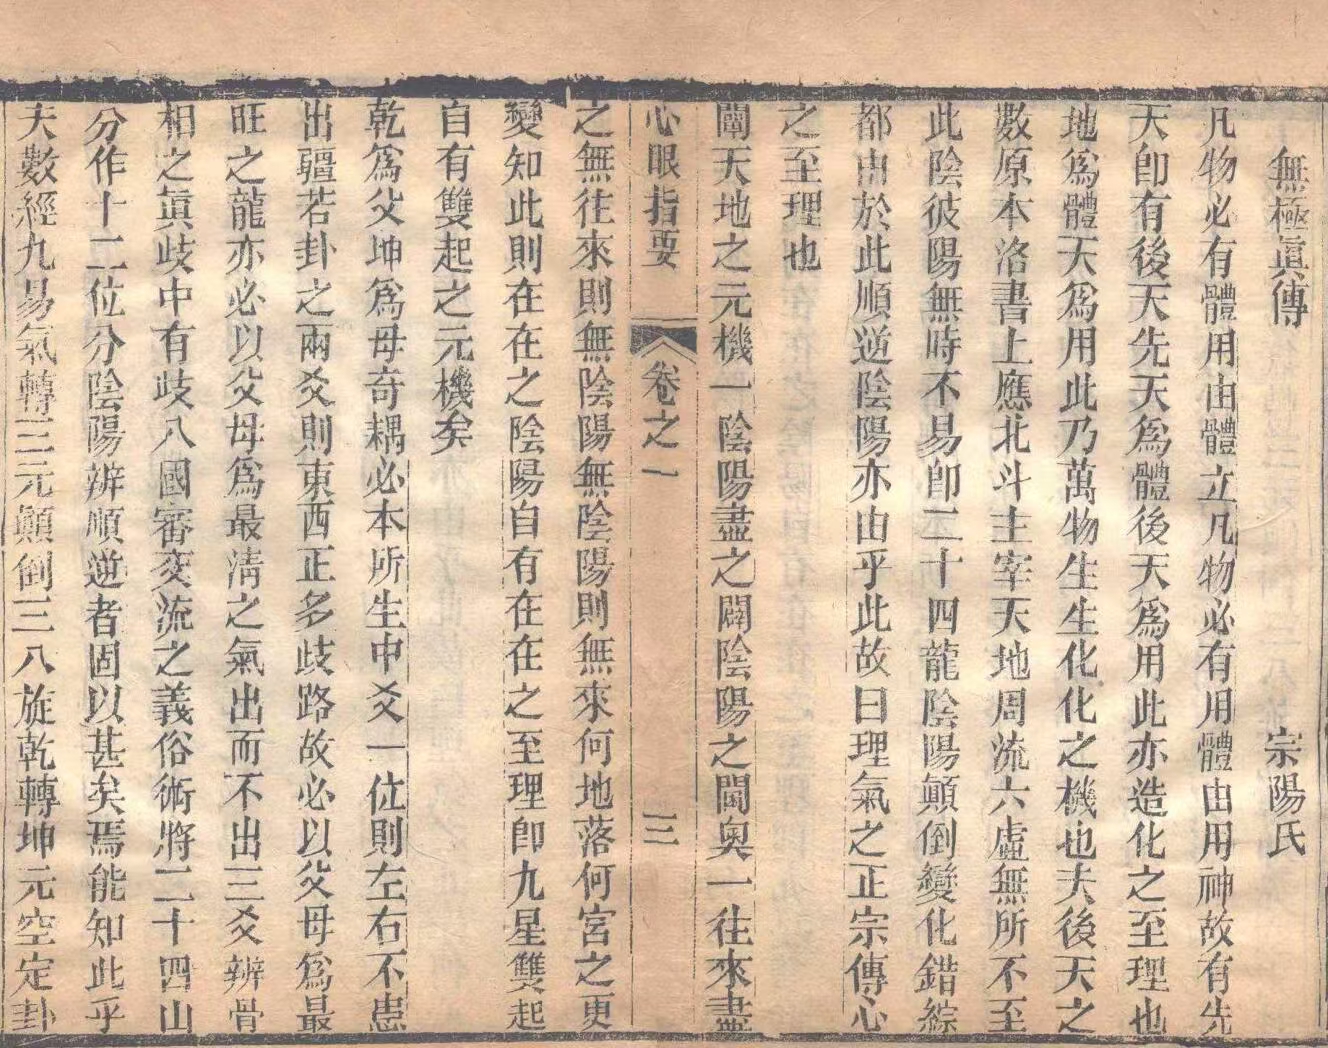 無極眞傳 宗陽氏
凡物必有體用由體立凡物必有用體由用神故有先
天卽有後天先天爲體後天爲用此亦造化之至理也
地爲體天爲用此乃萬物生生化化之機也夫後天之
數原本洛書上應北斗主宰天地周流六虛無所不至
此陰彼陽無時不易卽二十四龍陰陽顚倒變化錯綜
都由於此順逆陰陽亦由乎此故曰理氣之正宗傳心
之至理也
闡天地之元機一陰陽盡之闢陰陽之閫奧一往來盡
心眼指要 卷之一 三
之無往來則無陰陽無陰陽則無來何地落何宮之更
變知此則在在之陰陽自有在在之至理卽九星雙起
自有雙起之元機矣
乾爲父坤爲母奇耦必本所生中爻一位則左右不患
出疆若卦之兩爻則東西正多歧路故必以父母爲最
旺之龍亦必以父母爲最淸之氣出而不出三爻辨骨
相之眞歧中有歧八國審交流之義俗術將二十四山
分作十二位分陰陽辨順逆者固以甚矣焉能知此乎
夫數經九易氣轉三元顚倒三八旋乾轉坤元空定卦